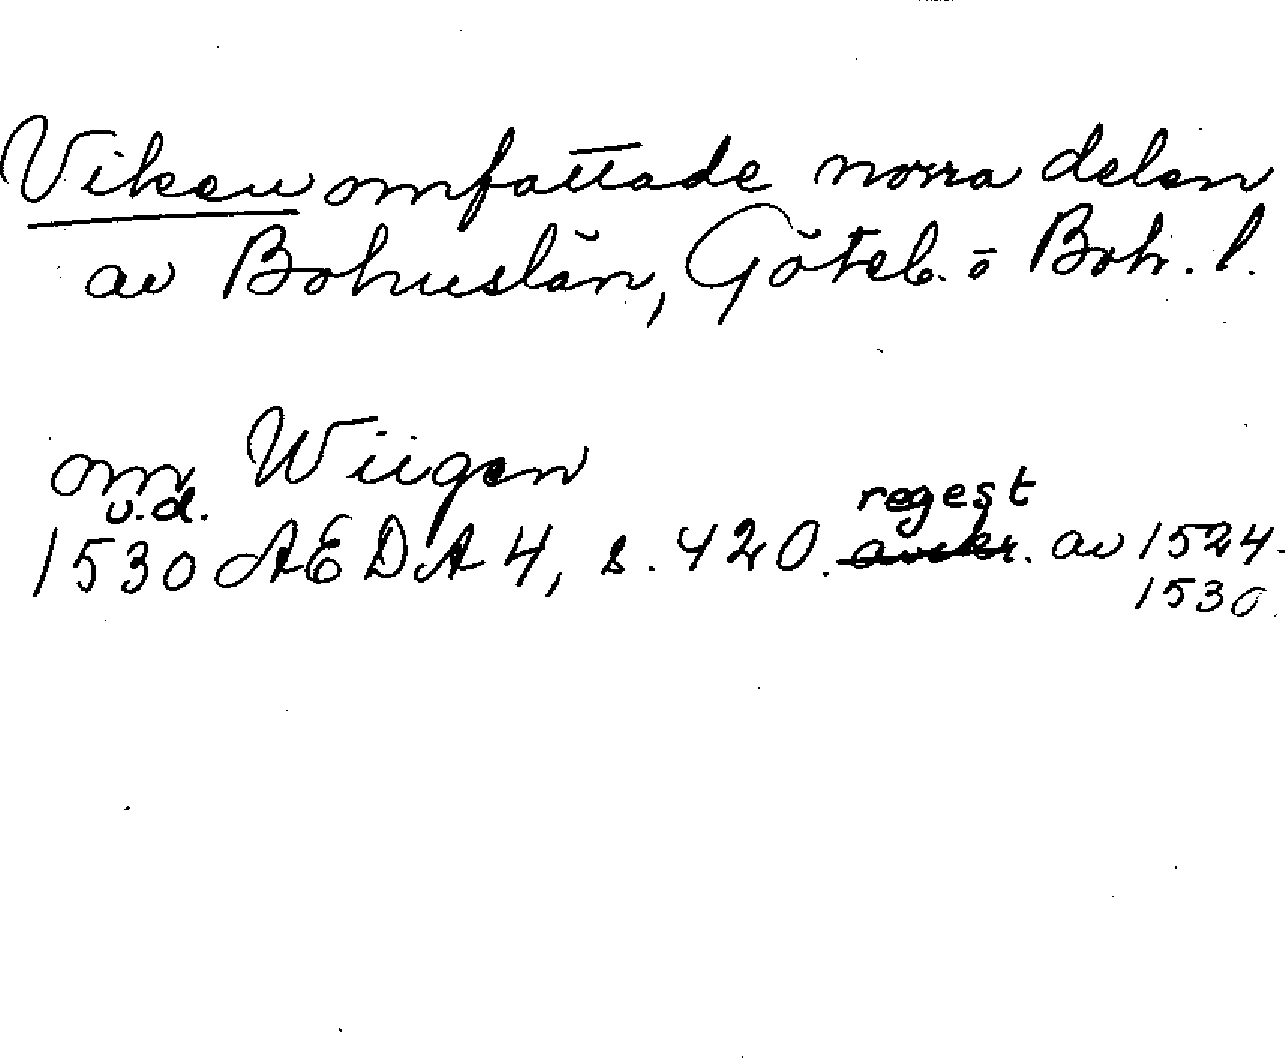 Viken omfattade norra delen
av Bohuslän, Göteb. o Boh. l.
om Wiigen
u.d. regest
1530 AEDA 4, s. 420. avskr. av 1524-
1530.